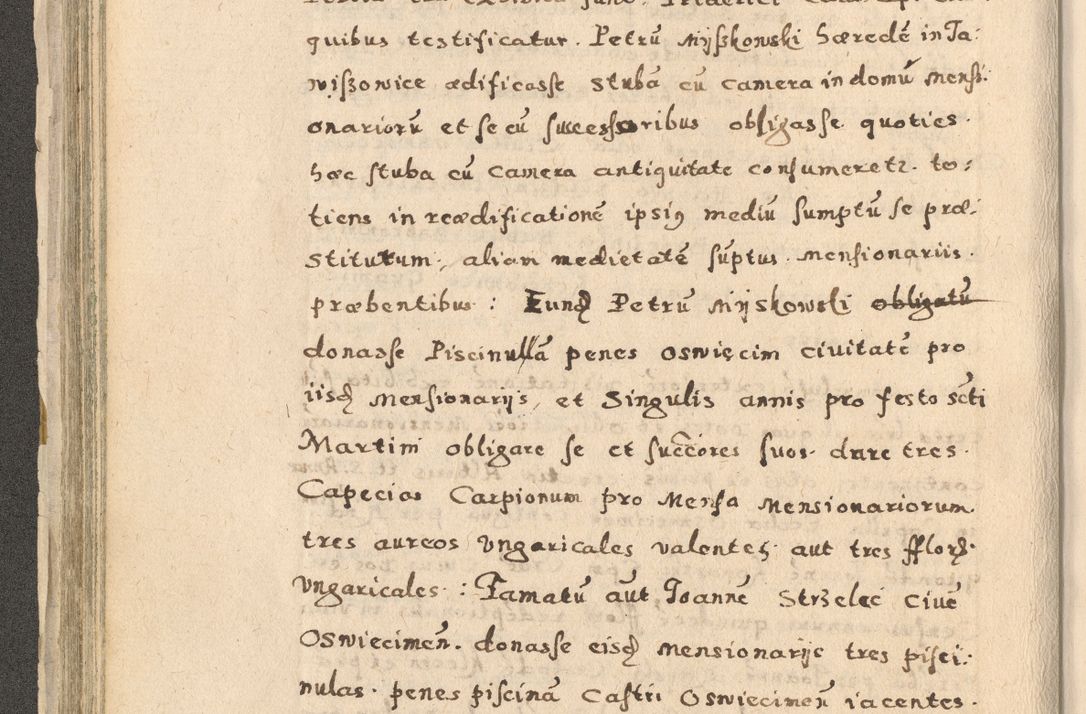 quibus testificatur. Petrũ Mijszkowski hæredẽ in Ja:
wiszowice ædificasse stubã cũ camera in domũ mensi:
onariorũ et se cũ successoribus obligasse quoties.
hæc stuba cũ camera antiquitate consumeretr. to:
tiens in reædificationẽ ipsiꝰ mediũ sumptũ se præ:
stiturum, aliam medietatẽ sũptus mensionariis.
præbentibus: Eundẽ Petrũ Mijskowski obligatũ
donasse Piscinullã penes Oswięcim civitatẽ pro
iisdẽ Mensionarijs, et Singulis annis pro festo scti
Martini obligare se et succores suos dare tres.
Capecias Carpionum pro Mensa Mensionariorum
tres aureos Vngaricales valentes aut tres fflorẽ.
Vngaricales: Famatũ aũt Joannẽ Strzelec Civẽ
Oswiecimeñ. donasse eisdẽ Mensionarijs tres pisci:
nulas. penes piscinã Castri Oswiecimeñ iacentes.